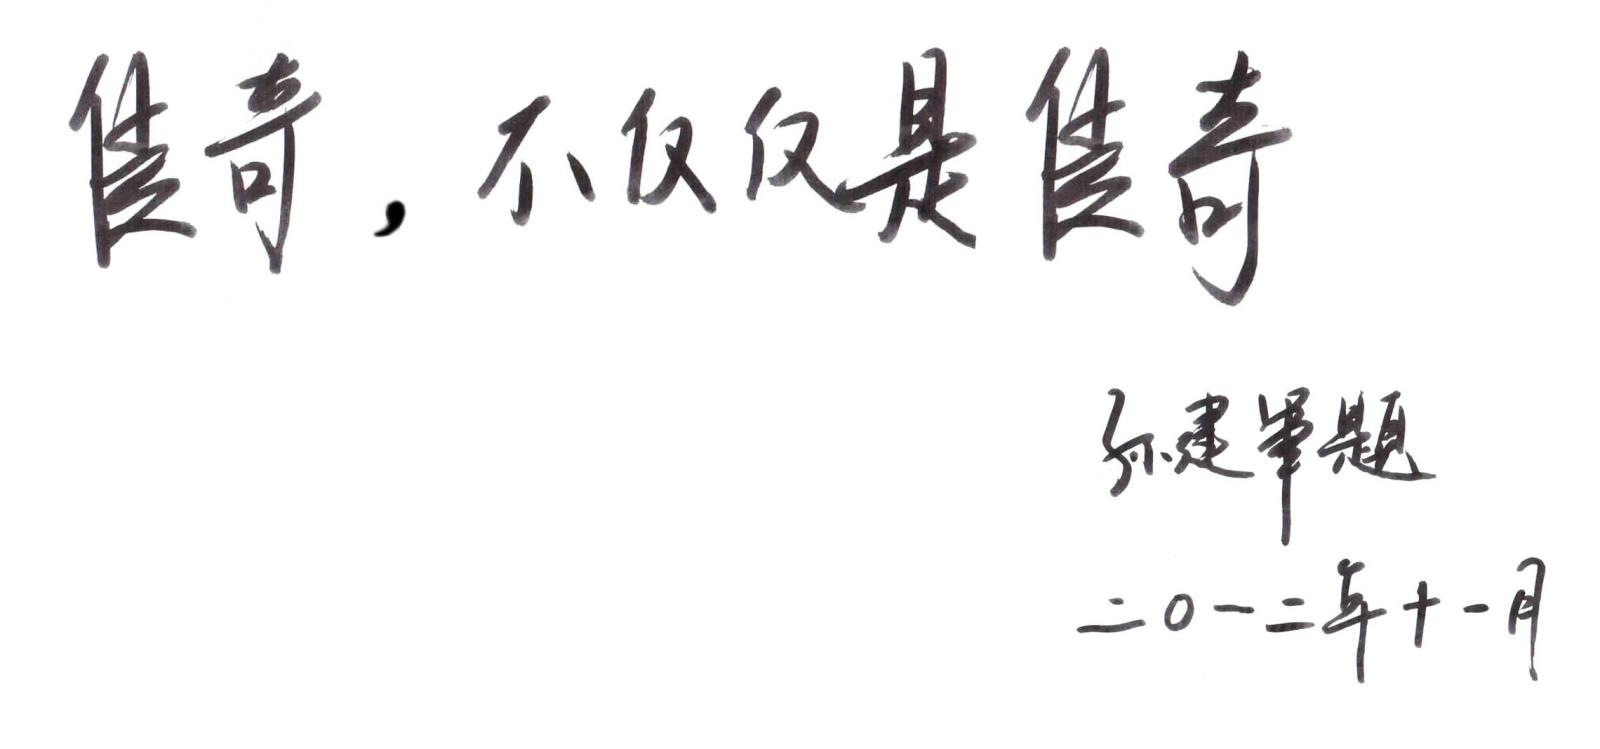 佳奇，不仅仅是佳奇
孙建军题
二〇一二年十一月